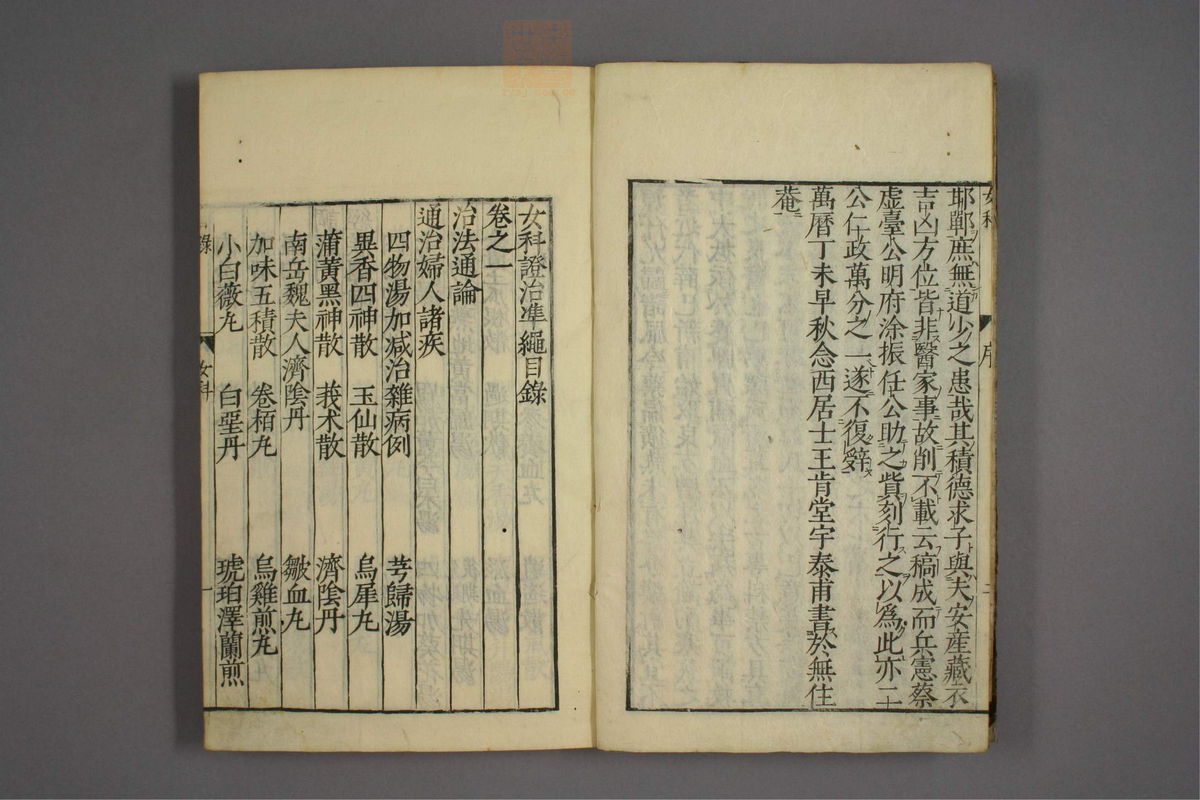 耶鄲庶無道少之患哉其積德求子與夫安產藏衣
吉凶方位皆非醫家事故削不載云稿成而兵憲蔡
虛臺公明府涂振任公助之貲刻行之以爲此亦二
公仁政萬分之一遂不復辤
萬曆丁未早秋念西居士王肯堂宇泰甫書於無住
菴
女科證治準繩目錄
卷之一
治法通論
通治婦人諸疾
四物湯加减治雜病例 芎歸湯
異香四神散 玉仙散 烏犀丸
蒲黃黑神散 莪朮散 濟陰丹
南岳魏夫人濟陰丹 皺血丸
加味五積散 卷栢丸 烏雞煎丸
小白薇丸 白堊丹 琥珀澤蘭煎